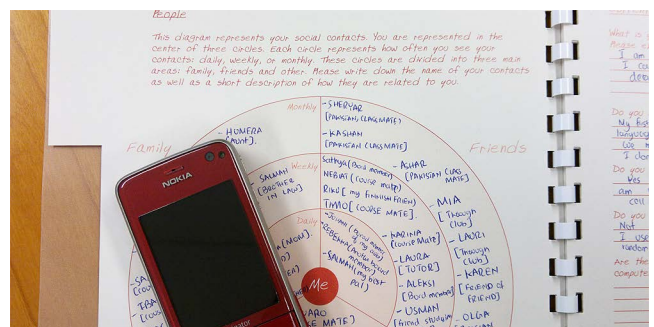 People
This diagram represents your social contacts. You are represented in the
center of three circles. Each circle represents how often you see your
contacts: daily, weekly, or monthly. These circles are divided into three main
areas: family, friends and other. Please write down the name of your contacts
as well as a short description of how they are related to you.
Family
Friends
Monthly
Weekly
Daily
Me
- HUMERA
[AUNT].
SALMAN
[BROTHER
IN LAW]
(MOM).
- SHERYAR
[PAKISTANI CLASSMATE)
- KASHAN
[PAKISTAN CLASSMATE]
- ASHAR
[PAKISTAN CLASS
MATE]
Sathya (Board member)
NERIAT (course mate)
RIKU [my FINNISH FRIEND]
TIMO [COURSE MATE].
member
- SALMAH (my best
pal]
- KARINA
(course Mate)
- LAURA
[TUTOR]
- ALEKSI
[Board member]
- USMAN
- MIA
[Through
Club]
- LAURI
[Through
Club]
- KAREN
[FRIEND OF
FRIEND]
- OLGA
MATE)
NOKIA
What is y
I am
I co
Do you
My first
language
We h
I don
Do you
Yes
am
cell
Do you
Not
I use
random
Are the
compute